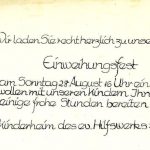 Wir laden Sie recht herzlich zu unse
Einweihungsfest
am Sonntag 28. August 16 Uhr ein
wollen mit unseren Kindern Ihn
einige frohe Stunden bereiten
Kinderheim des ev. Hilfswerks